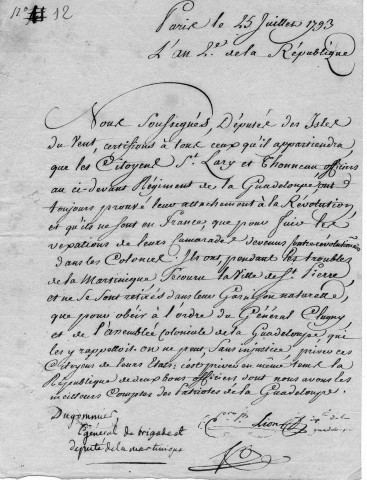 N° 12
Paris le 25 Juillet 1793
L'an 2.e de la République
Nous Soussignés, Députés des Isles
du Vent, certifions à tous ceux qu'il appartiendra,
que les Citoyens St. Lary et Thonneau officiers
au ci-devant Régiment de la Guadeloupe ont
toujours prouvé leur attachement à la Révolution,
et qu'ils ne sont en France, que pour fuire les
vexations de leurs Camarades devenus contre-révolutionnaires
dans les Colonies. Ils ont pendant les troubles
de la Martinique secouru la Ville de St. Pierre
et ne se sont retirés dans leur Garnison naturelle,
que pour obéir à l'ordre du Général Clugny
et de l'assemblée coloniale de la Guadeloupe, qui
les y rappelloit. on ne peut, sans injustice, priver ces
Citoyens de leurs Etats: c'est priver en même tems la
République de deux bons officiers dont nous avons les
meilleurs Comptes des patriotes de la Guadeloupe.
Dugommier
général de brigade et
député de la martinique
Lion